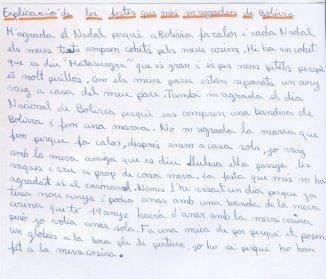 Explicació de les festes que més m'agraden de Bolívia
M'agrada el Nadal perquè a Bolívia fa calor i cada Nadal
els meus tiets compren cohets pels meus cosins. Hi ha un cohet
que es diu "Matasuegra" que és gran i és per nens petits perquè
és molt perillos. Com els meus pares están separats un any
vaig a casa del meu pare. També m'agrada el dia
Nacional de Bolívia perquè ens compren una bandera de
Bolívia i fem una marxa. No m'agrada la marxa que
fem perquè fa calor, després anem a casa sols, jo vaig
amb la meva amiga que es diu ella passeja les
vaques i viu a prop de casa meva. La festa que més m'ha
agradat és el carnaval. Només l'he ussat un dia perquè ja
tinc nou anys i podia anar amb una banda de la meva
cosina que té 14 anys havia d'anar amb la meva cosina
però jo volia anar sola. Fa una mica de por perquè et posen
un globus a la boca ple de pintura, jo ho sé perquè ho han
fet a la meva cosina.